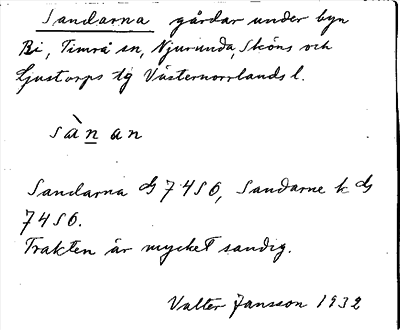 Sandarna gårdar under byn
Bi, Timrå sn, Njurunda, Sköns och
Ljustorps tg Västernorrlands l.
sàn an
Sandarna G 7456, Sandarne k G
7456.
Trakten är mycket sandig.
Valter Jansson 1932